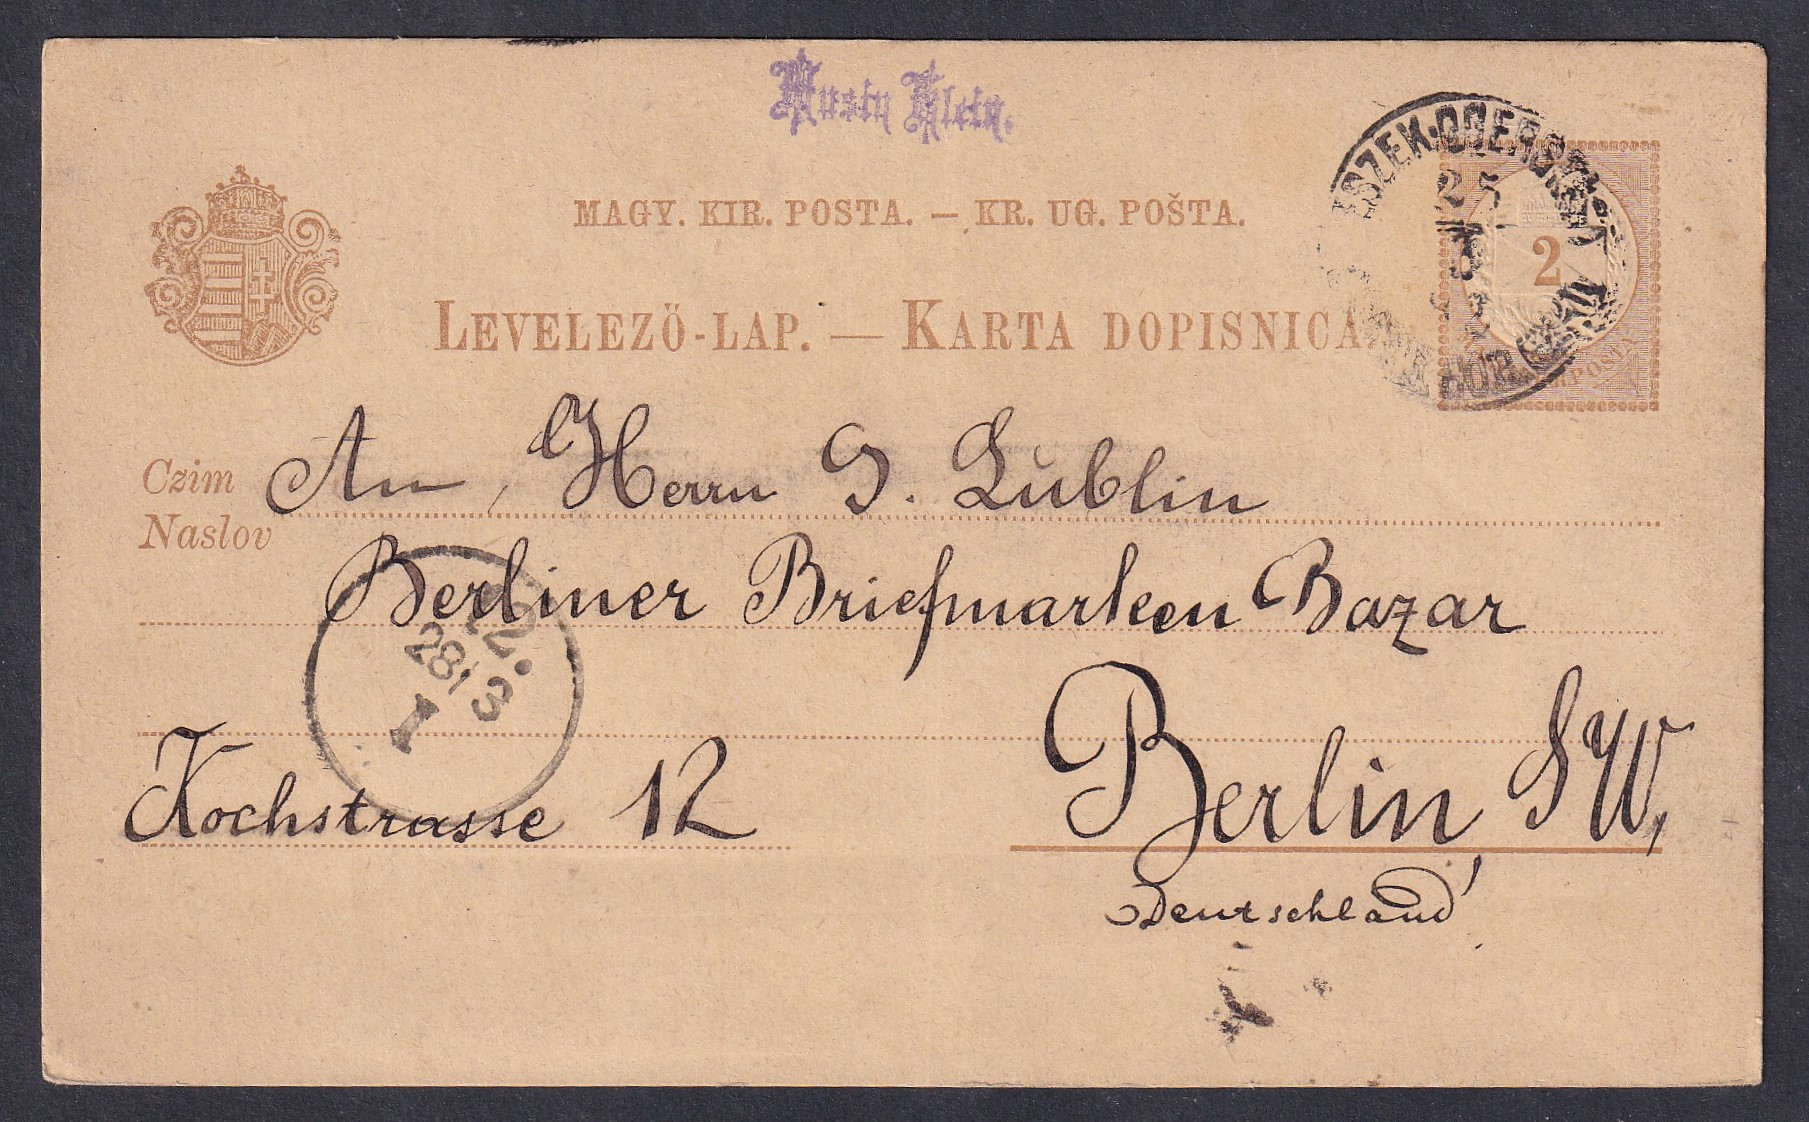 Klein.
MAGY. KIR. POSTA. — KR. UG. POŠTA.
LEVELEZŐ-LAP. — KARTA DOPISNICA.
2
Czim
Naslov
An Herrn J. Lublin
Berliner Briefmarken Bazar
28 3
I
Kochstrasse 12
Berlin SW,
Deutschland